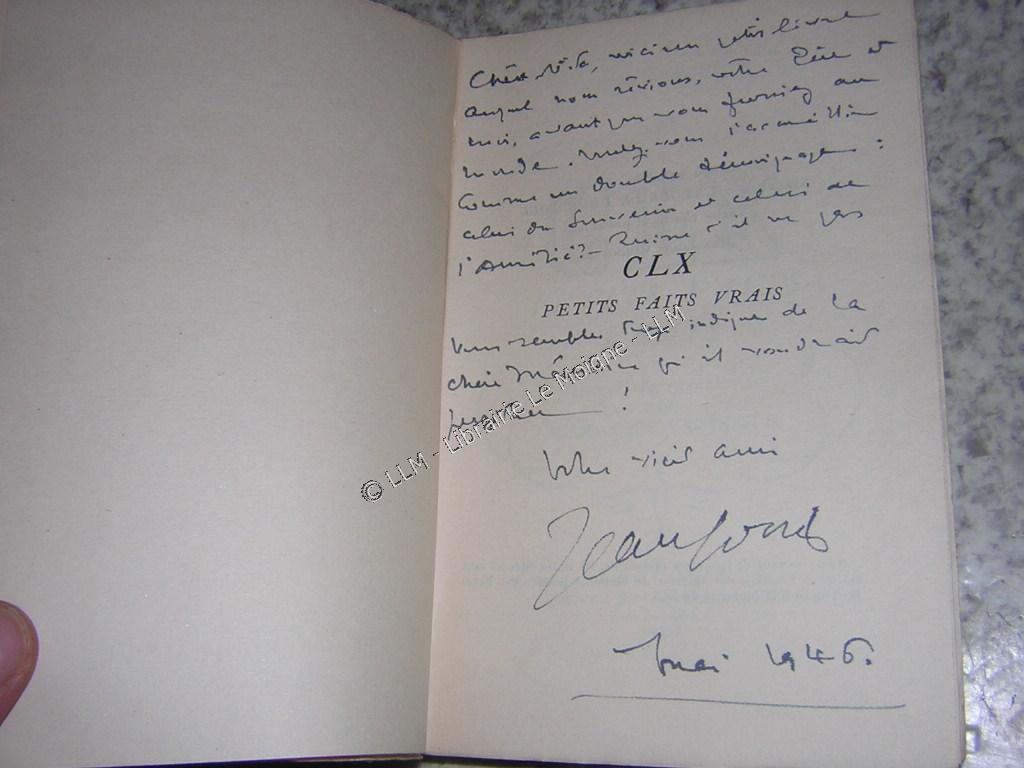 Chère voici un petit livre
auquel nous rêvions, votre Père et
moi, avant que vous fussiez au
monde. Voulez-vous l'accueillir
comme un double témoignage :
celui du Souvenir et celui de
l'Amitié ? - Puisse-t-il ne pas
CLX
PETITS FAITS VRAIS
Vous sembler trop indigne de la
chère qu'il voudrait
!
Votre vieil ami
Jean
mai 1946.
© LLM - Librairie Le Moigne - LLM